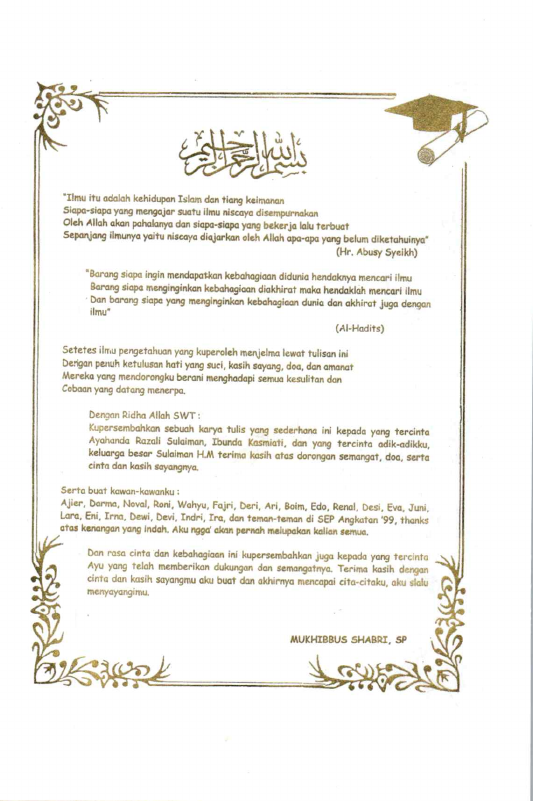 بسم الله الرحمن الرحيم
"Ilmu itu adalah kehidupan Islam dan tiang keimanan
Siapa-siapa yang mengajar suatu ilmu niscaya disempurnakan
Oleh Allah akan pahalanya dan siapa-siapa yang bekerja lalu terbuat
Sepanjang ilmunya yaitu niscaya diajarkan oleh Allah apa-apa yang belum diketahuinya"
(Hr. Abusy Syeikh)
"Barang siapa ingin mendapatkan kebahagiaan didunia hendaknya mencari ilmu
Barang siapa menginginkan kebahagiaan diakhirat maka hendaklah mencari ilmu
Dan barang siapa yang menginginkan kebahagiaan dunia dan akhirat juga dengan
ilmu"
(Al-Hadits)
Setetes ilmu pengetahuan yang kuperoleh menjelma lewat tulisan ini
Dengan penuh ketulusan hati yang suci, kasih sayang, doa, dan amanat
Mereka yang mendorongku berani menghadapi semua kesulitan dan
Cobaan yang datang menerpa.
Dengan Ridha Allah SWT :
Kupersembahkan sebuah karya tulis yang sederhana ini kepada yang tercinta
Ayahanda Razali Sulaiman, Ibunda Kasmiati, dan yang tercinta adik-adikku,
keluarga besar Sulaiman H.M terima kasih atas dorongan semangat, doa, serta
cinta dan kasih sayangnya.
Serta buat kawan-kawanku :
Ajier, Darma, Noval, Roni, Wahyu, Fajri, Deri, Ari, Boim, Edo, Renal, Desi, Eva, Juni,
Lara, Eni, Irna, Dewi, Devi, Indri, Ira, dan teman-teman di SEP Angkatan '99, thanks
atas kenangan yang indah. Aku ngga' akan pernah melupakan kalian semua.
Dan rasa cinta dan kebahagiaan ini kupersembahkan juga kepada yang tercinta
Ayu yang telah memberikan dukungan dan semangatnya. Terima kasih dengan
cinta dan kasih sayangmu aku buat dan akhirnya mencapai cita-citaku, aku slalu
menyayangimu.
MUKHIBBUS SHABRI, SP